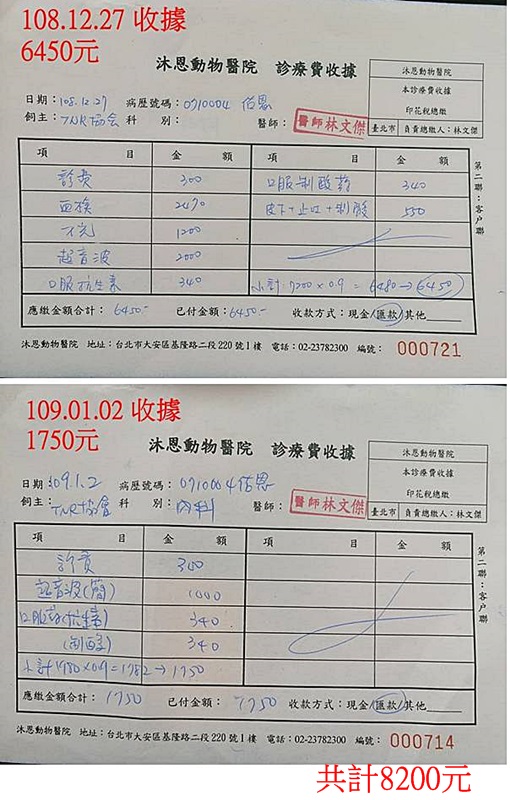 108.12.27 收據
6450元
沐恩動物醫院 診療費收據
沐恩動物醫院
本診療費收據
印花稅總繳
臺北市 負責總繳人：林文傑
日期：108.12.27 病歷號碼：0710004 佰恩
飼主：TNR協會 科 別： 醫師： 醫師林文傑
項 目 金 額 項 目 金 額
診費 300 口服制酸药 340
血檢 2470 皮下+止吐+制酸 550
X光 1200
超音波 2000
口服抗生素 340 小計:7200×0.9=6480→6450
應繳金額合計：6450.- 已付金額：6450.- 收款方式：現金/匯款/其他
第二聯：客戶聯
沐恩動物醫院 地址：台北市大安區基隆路二段220號1樓 電話：02-23782300 編號： 000721
109.01.02 收據
1750元
沐恩動物醫院 診療費收據
沐恩動物醫院
本診療費收據
印花稅總繳
臺北市 負責總繳人：林文傑
日期：109.1.2 病歷號碼：0710004佰恩
飼主：TNR協會 科 別：內科 醫師： 醫師林文傑
項 目 金 額 項 目 金 額
診費 300
超音波(簡) 1000
口服药(抗生素) 340
(制酸) 340
小計1980×0.9=1782→1750
應繳金額合計：1750 已付金額：1750 收款方式：現金/匯款/其他
第二聯：客戶聯
沐恩動物醫院 地址：台北市大安區基隆路二段220號1樓 電話：02-23782300 編號： 000714
共計8200元